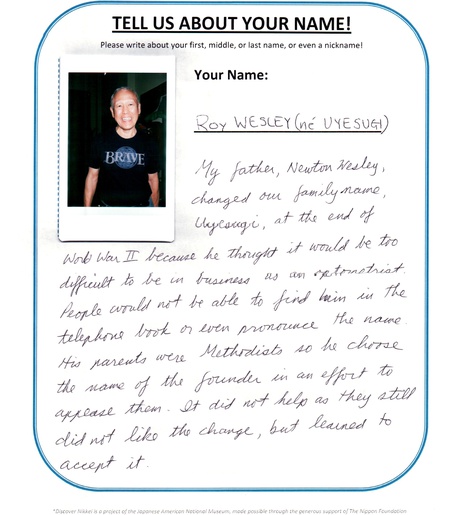 TELL US ABOUT YOUR NAME!
Please write about your first, middle, or last name, or even a nickname!
Your Name:
ROY WESLEY (né UYESUGI)
BRAVE
My father, Newton Wesley,
changed our family name,
Uyesugi, at the end of
World War II because he thought it would be too
difficult to be in business as an optometrist.
People would not be able to find him in the
telephone book or even pronounce the name.
His parents were Methodists so he choose
the name of the founder in an effort to
appease them. It did not help as they still
did not like the change, but learned to
accept it.
*Discover Nikkei is a project of the Japanese American National Museum, made possible through the generous support of The Nippon Foundation